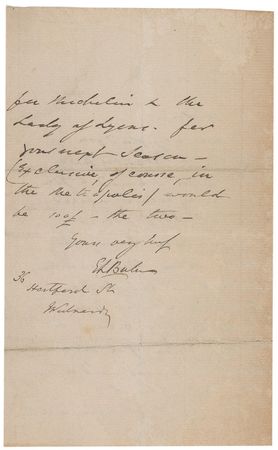 for Richelieu & the
Lady of Lyons - for
your next Season -
(Exclusive, of course, in
the Metropolis) would
be 100£ - the two -
Yours very truly
EL Bulwer
36
Hertford St
Wednesdy